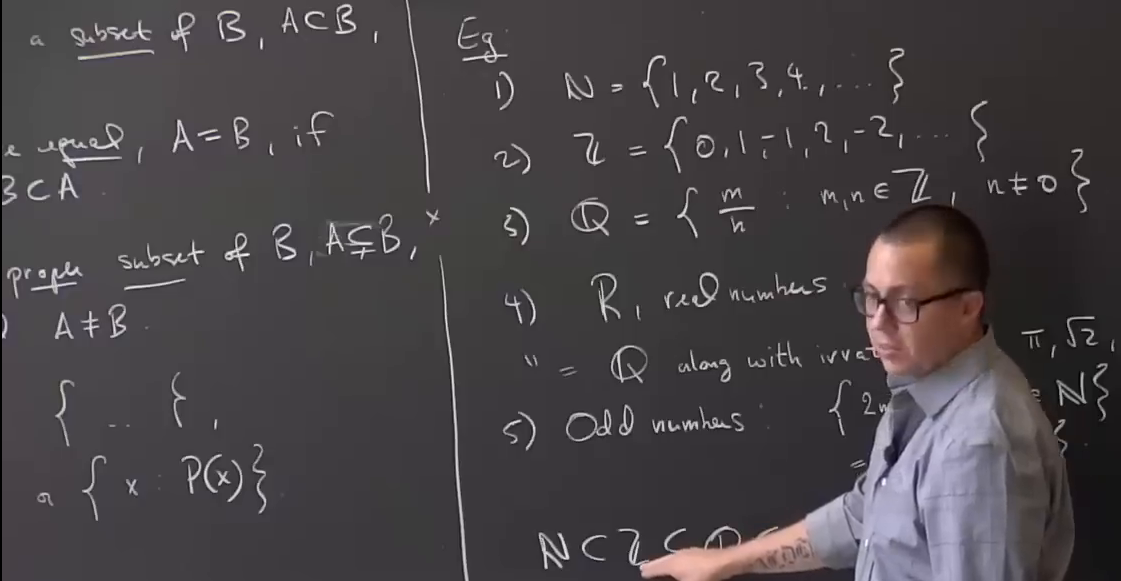 a subset of B, A⊂B,
equal, A=B, if
B⊂A.
proper subset of B, A⊊B,
A≠B.
{ .. },
{ x : P(x)}
Eg:
1) ℕ = {1, 2, 3, 4, ... }
2) ℤ = {0, 1, -1, 2, -2, ... }
3) ℚ = { m/n : m, n ∈ ℤ, n≠0}
4) ℝ, real numbers
" = ℚ along with π, √2,
5) Odd numbers : { ℕ}
=
ℕ⊂ℤ⊂ℚ